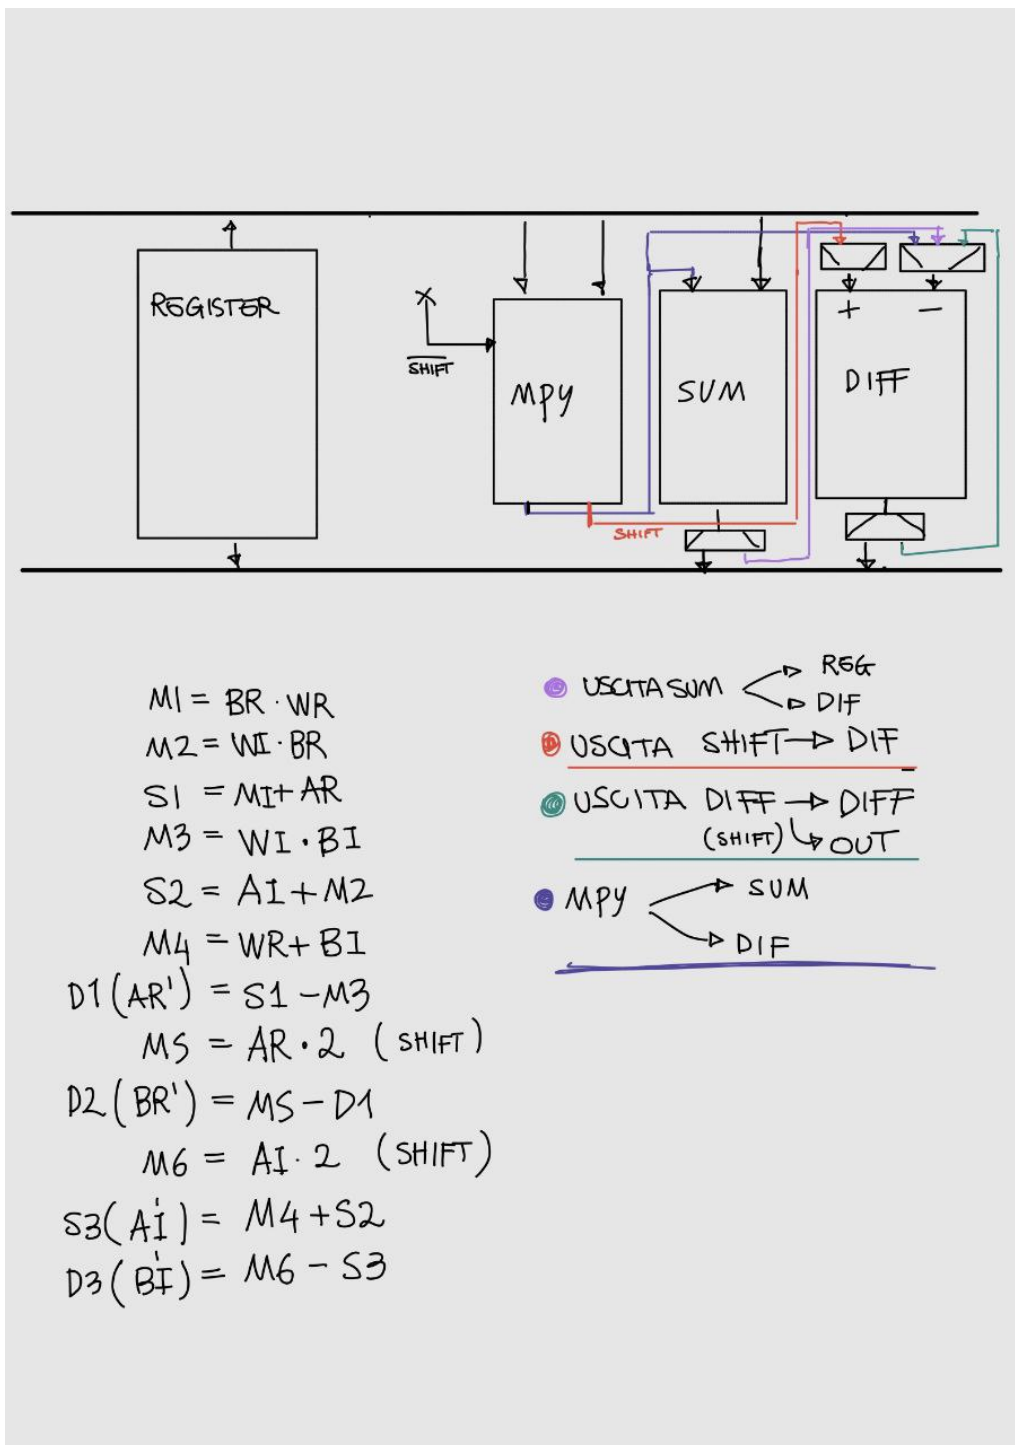 REGISTER
SHIFT
MPY
SUM
DIFF
+ −
SHIFT
M1 = BR · WR
M2 = WI · BR
S1 = M1 + AR
M3 = WI · BI
S2 = AI + M2
M4 = WR + BI
D1 (AR') = S1 − M3
M5 = AR · 2 (SHIFT)
D2 (BR') = M5 − D1
M6 = AI · 2 (SHIFT)
S3 (AI') = M4 + S2
D3 (BI') = M6 − S3
USCITA SUM → REG
→ DIF
USCITA SHIFT → DIF
USCITA DIFF → DIFF
(SHIFT) → OUT
MPY → SUM
→ DIF